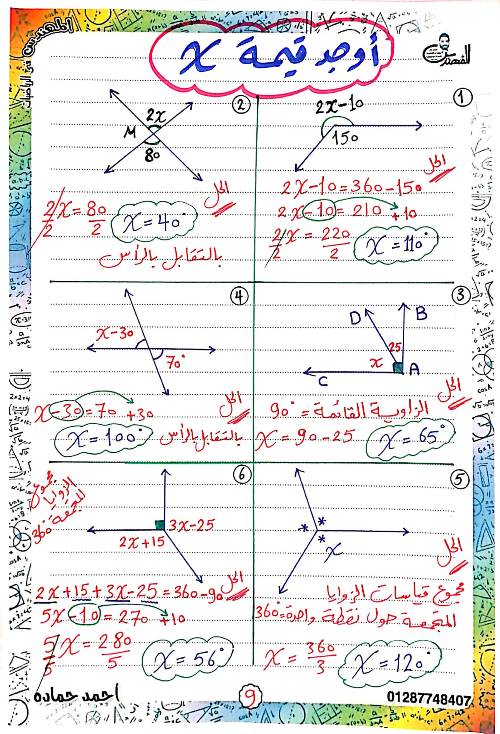 المهندس في الرياضيات
الفهرس
أوجد قيمة x
①
2x-10
150
الحل
2x-10=360-150
2x-10=210 +10
2x/2=220/2
x=110°
②
2x
M
80
الحل
2x/2=80/2
x=40°
بالتقابل بالرأس
③
D
B
25
x
A
C
الحل
الزاوية القائمة = 90°
x=90-25
x=65°
④
x-30
70°
الحل
x-30=70 +30
x=100°
بالتقابل بالرأس
⑤
* * *
x
الحل
مجموع قياسات الزوايا
المتجمعة حول نقطة واحدة=360°
x=360/3
x=120°
⑥
3x-25
2x+15
مجموع
الزوايا
المتجمعة
360°
الحل
2x+15+3x-25=360-90
5x-10=270 +10
5x/5=280/5
x=56°
احمد حماده
9
01287748407